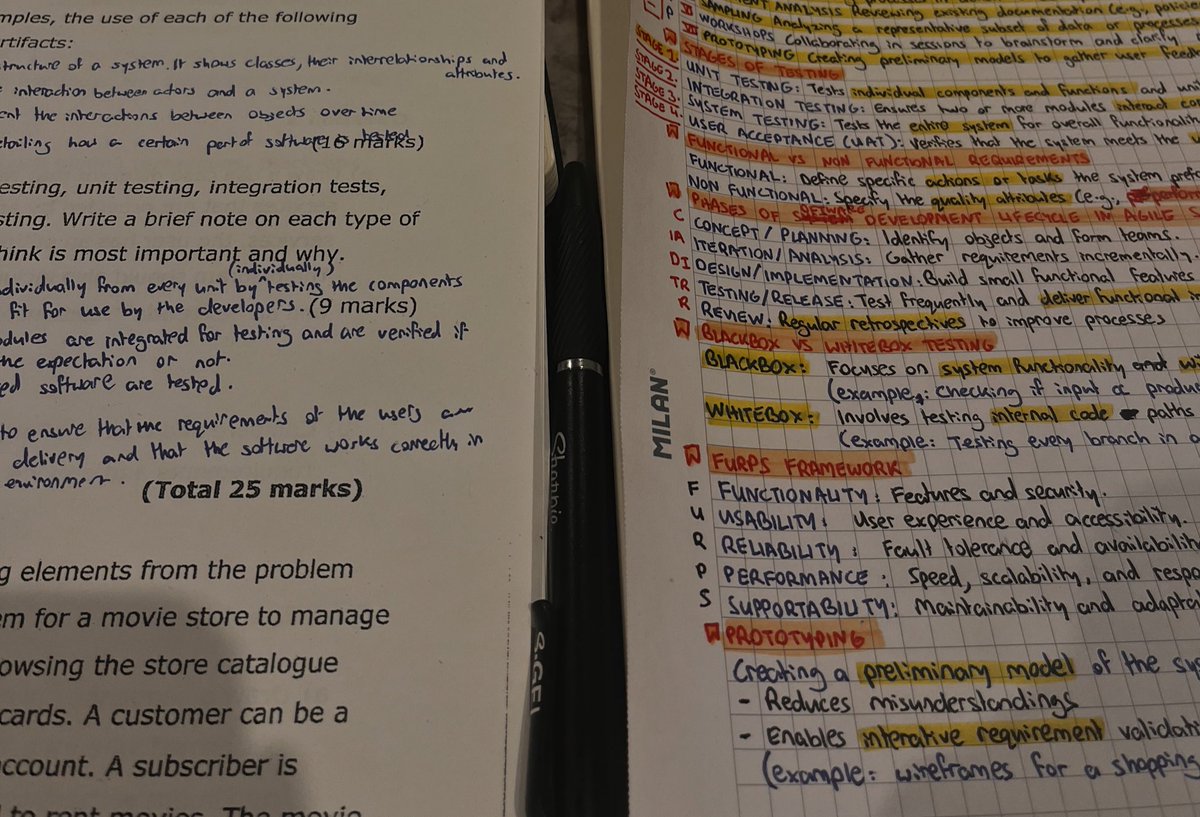 mples, the use of each of the following
rtifacts:
structure of a system. It shows classes, their interrelationships and
attributes.
interaction between actors and a system.
ent the interactions between objects over time
etailing how a certain part of software is tested
(16 marks)
esting, unit testing, integration tests,
sting. Write a brief note on each type of
hink is most important and why.
(individually)
ndividually from every unit by ^ testing the components
fit for use by the developers. (9 marks)
odules are integrated for testing and are verified if
the expectation or not.
ed software are tested.
to ensure that the requirements of the users are
delivery and that the software works correctly in
environment.
(Total 25 marks)
g elements from the problem
em for a movie store to manage
owsing the store catalogue
cards. A customer can be a
account. A subscriber is
d to rent movies. The movie
Graphic
S.GEL
MILAN®
ENT ANALYSIS Reviewing existing documentation (e.g., policies
P VI SAMPLING Analyzing a representative subset of data or processes
WORKSHOPS Collaborating in sessions to brainstorm and clarify
PROTOTYPING Creating preliminary models to gather user feed
STAGES OF TESTING
STAGE 1. UNIT TESTING: Tests individual components and functions and uni
STAGE 2. INTEGRATION TESTING: Ensures two or more modules interact co
STAGE 3. SYSTEM TESTING: Tests the entire system for overall functionalit
STAGE 4. USER ACCEPTANCE (UAT): Verifies that the system meets the
FUNCTIONAL VS NON FUNCTIONAL REQUIREMENTS
FUNCTIONAL: Define specific actions or tasks the system prefo
NON FUNCTIONAL: Specify the quality attributes (e.g., perform
PHASES OF SOFTWARE DEVELOPMENT LIFECYCLE IN AGILE S
C CONCEPT / PLANNING: Identify objects and form teams.
IA ITERATION/ANALYSIS: Gather requirements incrementally.
DI DESIGN/IMPLEMENTATION: Build small functional features
TR TESTING/RELEASE: Test frequently and deliver functional i
R REVIEW: Regular retrospectives to improve processes
BLACKBOX VS WHITEBOX TESTING
BLACKBOX: Focuses on system functionality and wi
(example: checking if input a produc
WHITEBOX: Involves testing internal code paths
(example: Testing every branch in a
FURPS FRAMEWORK
F FUNCTIONALITY: Features and security.
U USABILITY: User experience and accessibility.
R RELIABILITY: Fault tolerance and availability
P PERFORMANCE: Speed, scalability, and respo
S SUPPORTABILITY: Maintainability and adapta
PROTOTYPING
Creating a preliminary model of the sys
- Reduces misunderstandings
- Enables interative requirement validat
(example: wireframes for a shopping